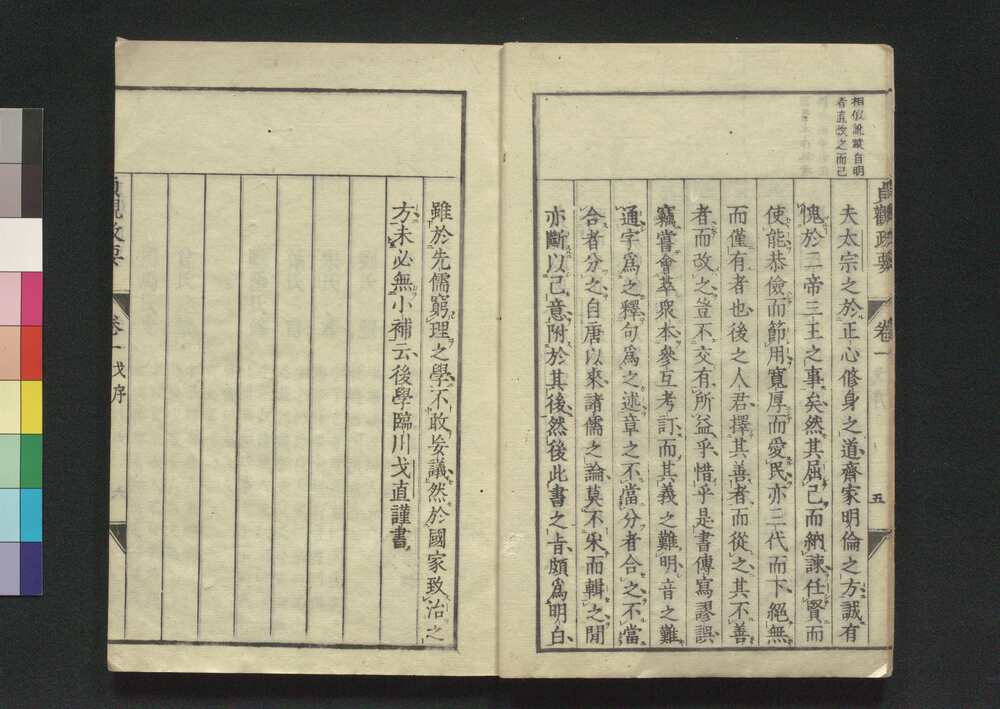 相似訛蹖自明
者直改之而已
貞觀政要 卷一 五
夫太宗之於正心修身之道齊家明倫之方誠有
愧於二帝三王之事矣然其屈己而納諫任賢而
使能恭儉而節用寬厚而愛民亦三代而下絕無
而僅有者也後之人君擇其善者而從之其不善
者而改之豈不交有所益乎惜乎是書傳寫謬誤
竊嘗會萃衆本參互考訂而其義之難明音之難
通字爲之釋句爲之述章之不當分者合之不當
合者分之自唐以來諸儒之論莫不采而輯之間
亦斷以己意附於其後然後此書之旨頗爲明白
雖於先儒窮理之學不敢妄議然於國家致治之
方未必無小補云後學臨川戈直謹書
貞觀政要 卷一 戈序